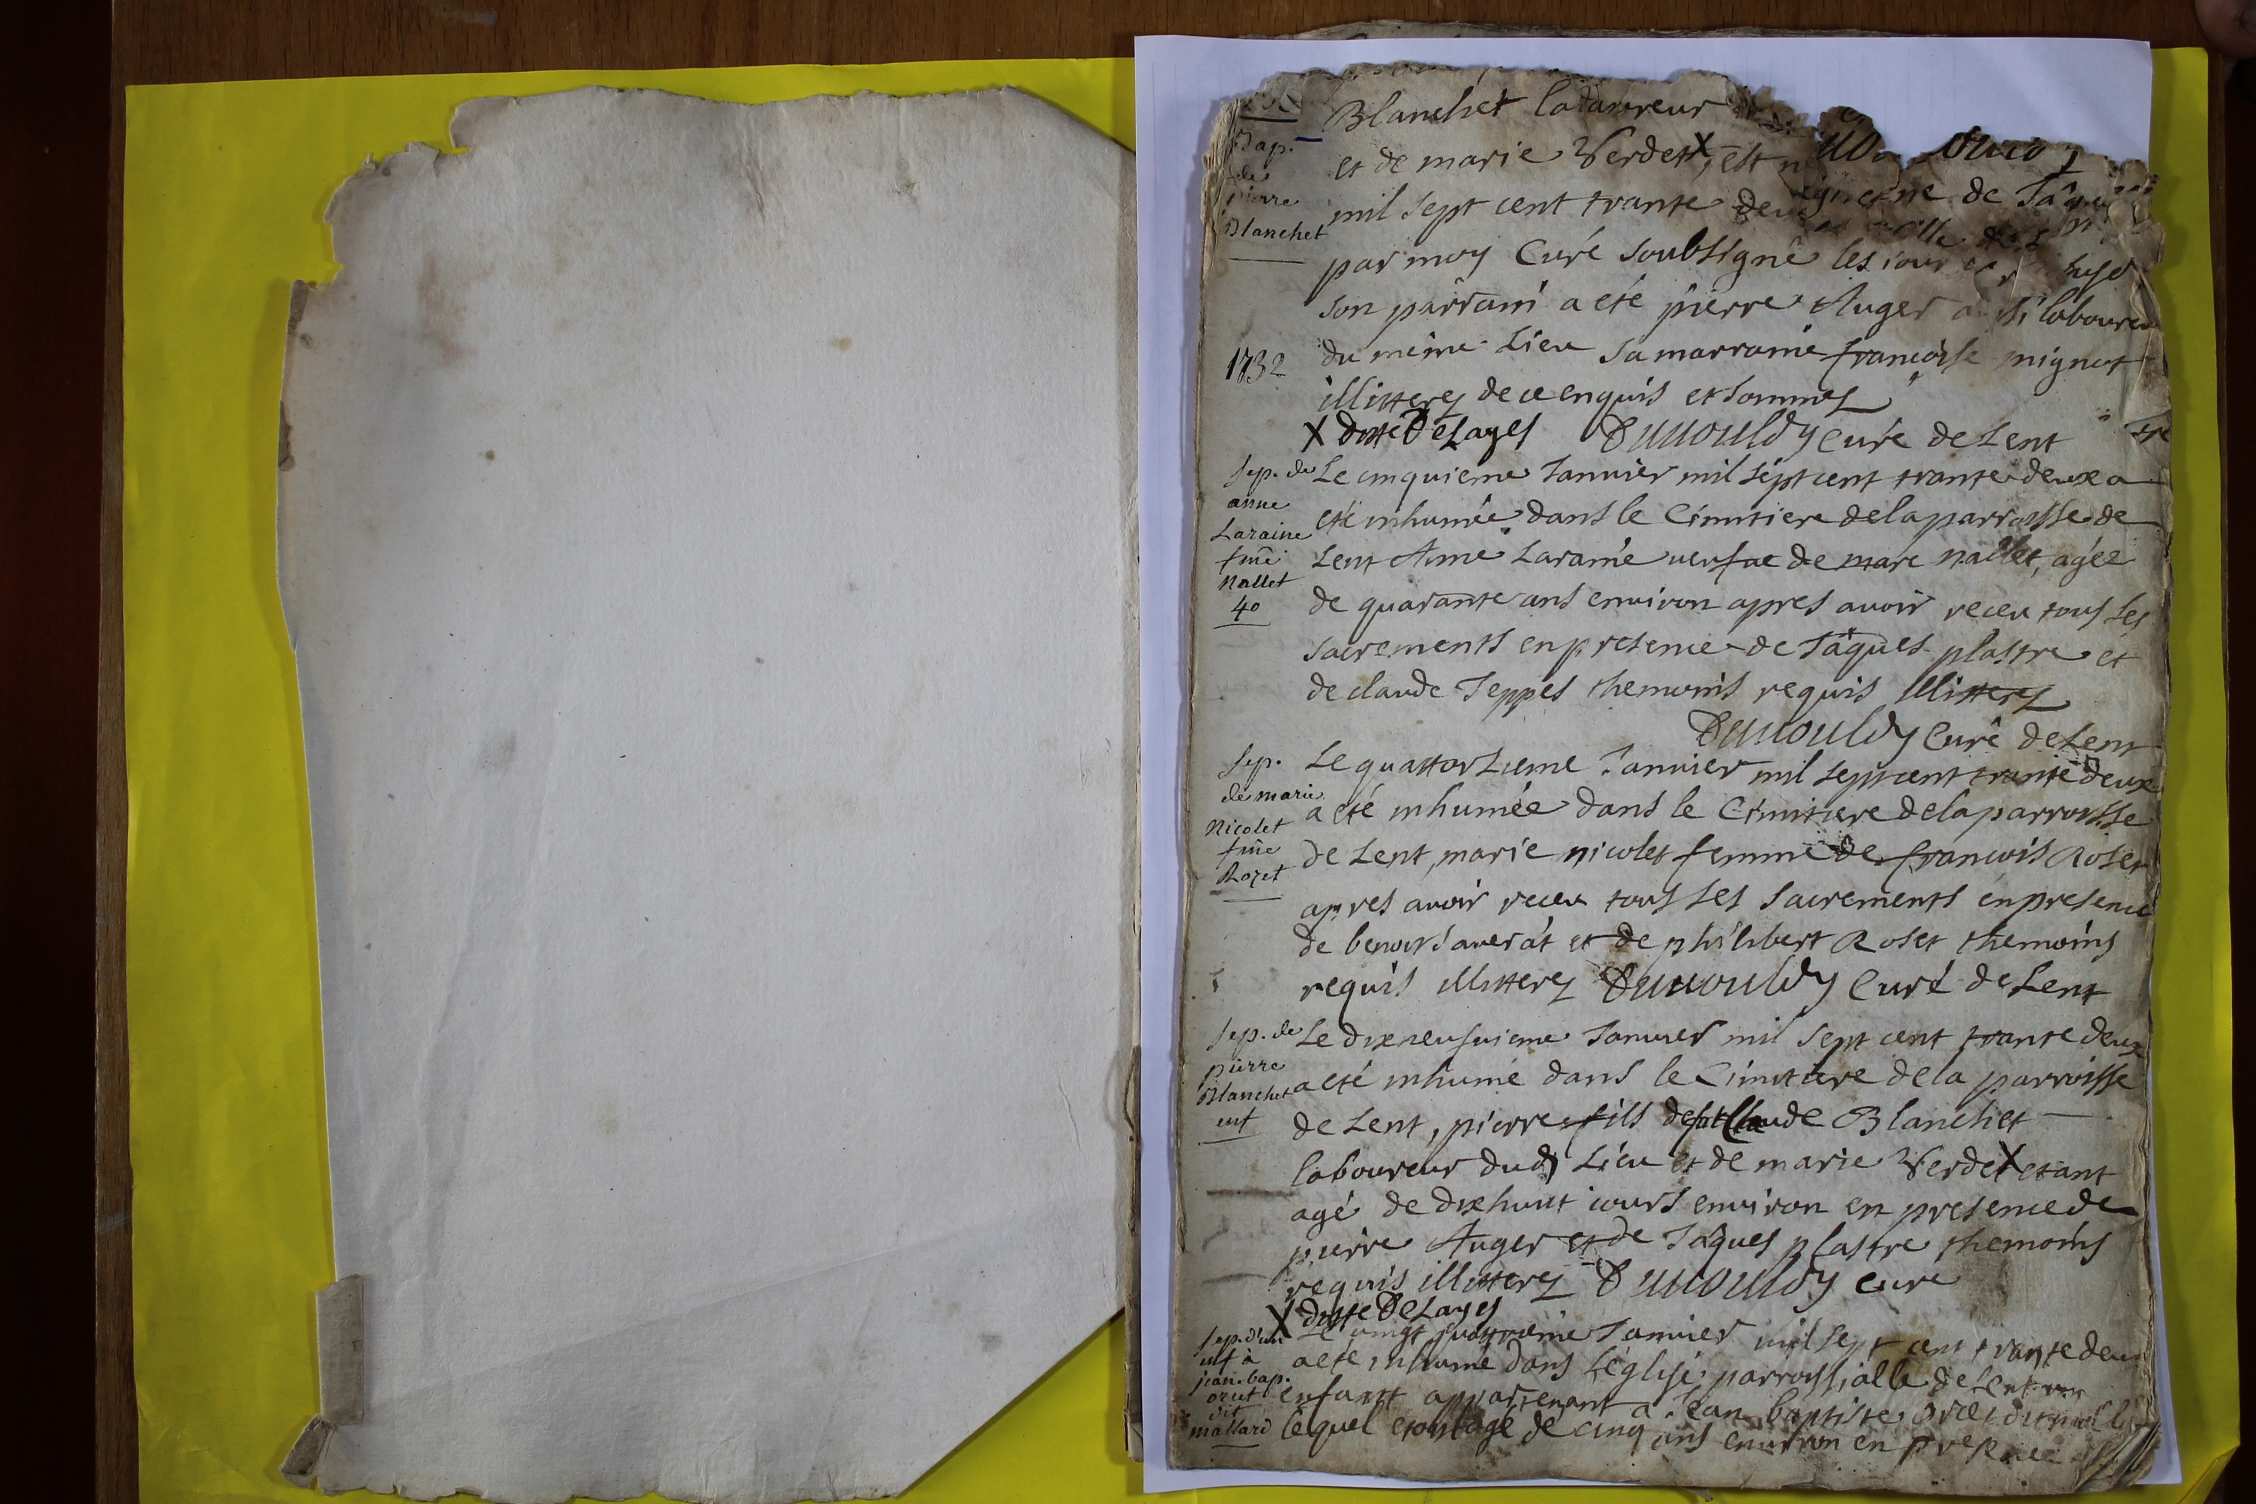 Blanchet laboureur
Bap.
de
pierre
Blanchet
et de marie Verdet X, est
mil sept cent trante deux
par moy Curé soubsigné les jour
son parrain a eté pierre Auger laboureur
1732
du meme Lieu sa marraine françoise mignot
illitterez de ce enquis et sommez
X ditte Delayes Dunouldy curé de Lent
Sep. de
anne
Laraine
fme
Nallet
40
Le cinquieme Janvier mil sept cent trante deux a
eté inhumée dans le Cimitiere de la parroisse de
Lent Anne Laraine veufve de marc nallet, agée
de quarante ans environ apres avoir receu tous ses
sacrements en presence de Jâques plastre et
de claude Jeppes themoins requis illitterez
Dunouldy Curé de Lent
Sep.
de marie
Nicolet
fme
Rozet
Le quattorzieme Janvier mil sept cent trante deux
a eté inhumée dans le Cimitiere de la parroisse
de Lent, marie nicolet femme de françois Roset
apres avoir receu tous ses sacrements en presence
de benoit saverat et de philibert Roset themoins
requis illitterez Dunouldy Curé de Lent
Sep. de
pierre
Blanchet
enf
Le dixneufvieme Janvier mil sept cent trante deux
a eté inhumé dans le Cimitiere de la parroisse
de Lent, pierre fils de fut Claude Blanchet
laboureur dud Lieu et de marie Verdet X etant
agé de dixhuit jours environ en presence de
pierre Auger et de Jâques plastre themoins
requis illitterez Dunouldy curé
X ditte Delayes
Sep. d'un
enf à
jean-bap.
oret
dit
mallard
Le vingt quattrieme Janvier mil sept cent trante deux
a eté inhumé dans l'église parroissialle de Lent un
enfant appartenant a Jean baptiste oret dit
lequel etoit agé de cinq ans environ en presence